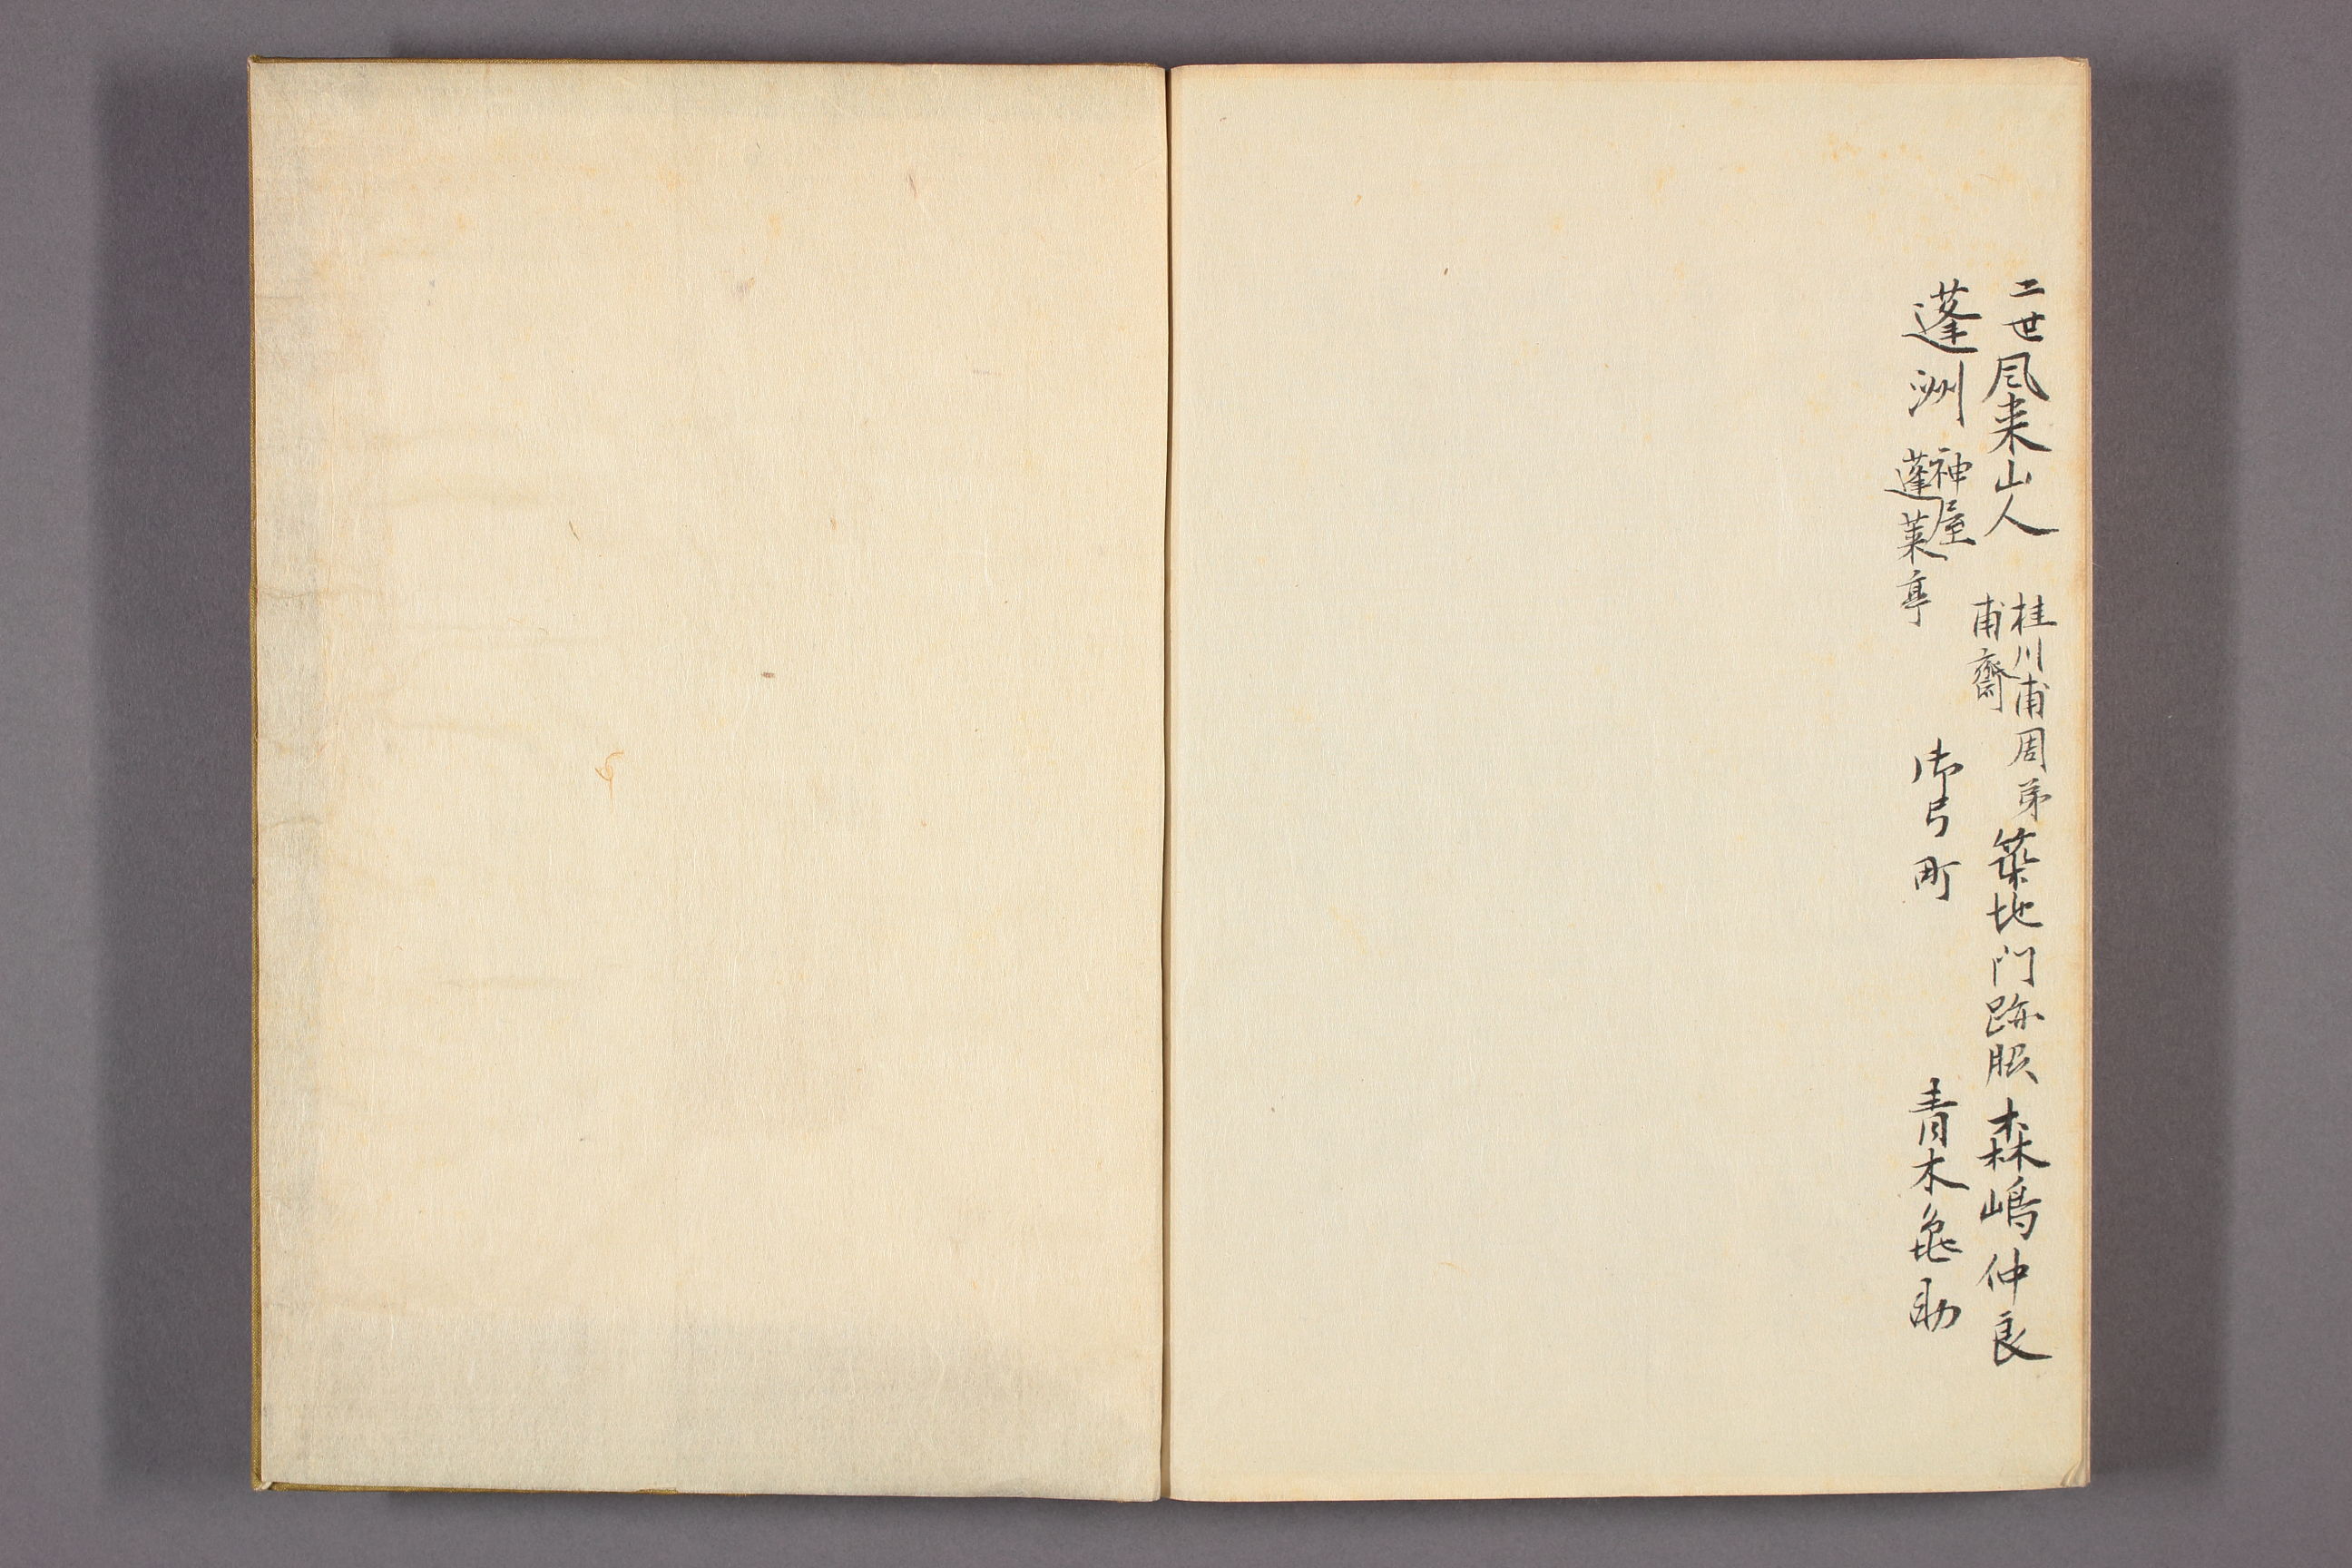 二世風来山人 桂川甫周弟 甫齋 築地門跡脇 森嶋仲良
蓬洲 神屋 蓬莱亭 御弓町 青木亀助